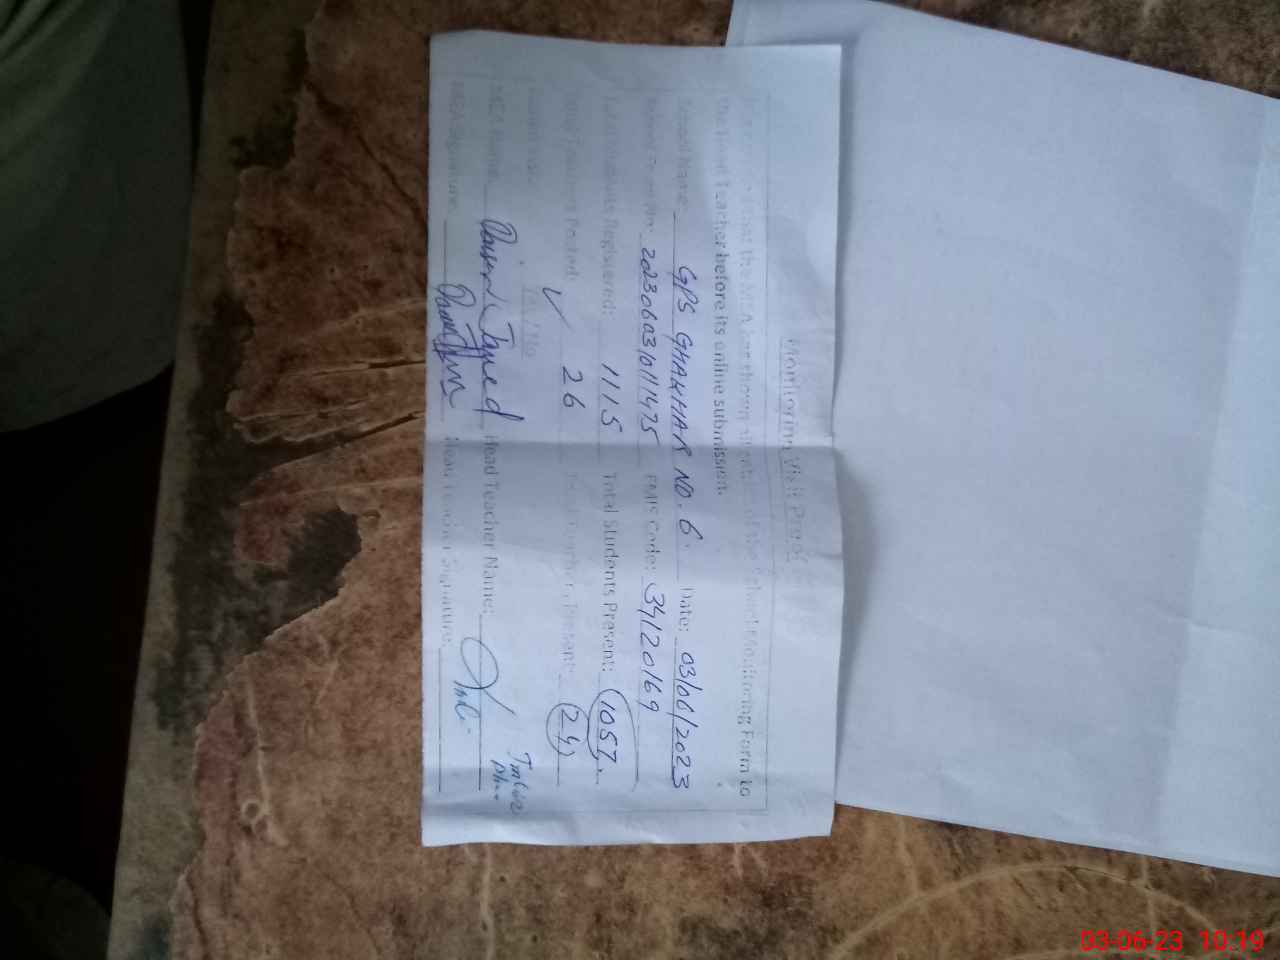 Monitoring Visit Proof
that the MEA has shown all contents of the School Monitoring Form to
the Head Teacher before its online submission.
School Name: GPS GHAKHAR NO. 6 Date: 03/06/2023
School Form No: 20230603/0111475 EMIS Code: 34120169
Total Students Registered: 1115 Total Students Present: 1057
Total Teachers Posted: 26 Total Teachers Present: 24
Yes / No ✓
MEA Name: Javed Head Teacher Name:
MEA Signature: Head Teacher Signature:
03-06-23 10:19